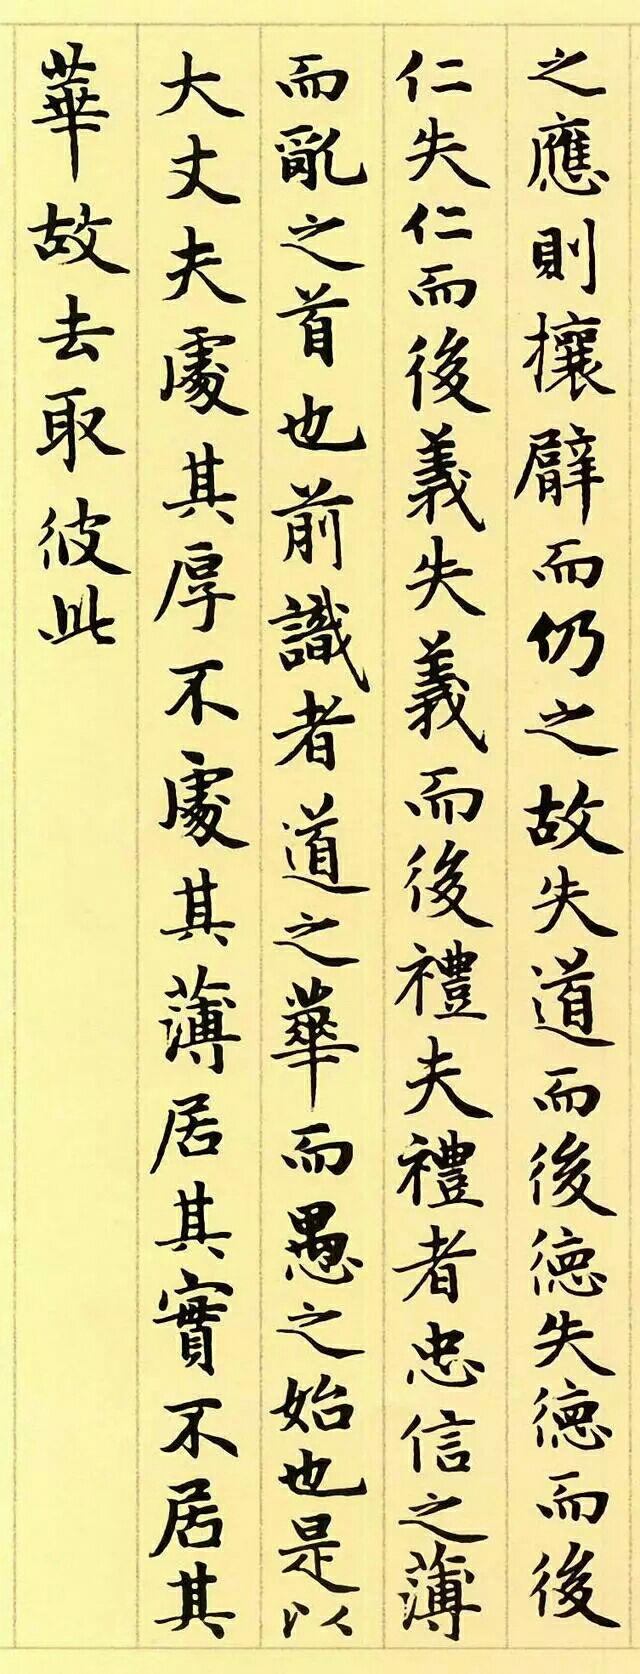 之應則攘臂而仍之故失道而後德失德而後
仁失仁而後義失義而後禮夫禮者忠信之薄
而亂之首也前識者道之華而愚之始也是以
大丈夫處其厚不處其薄居其實不居其
華故去取彼此